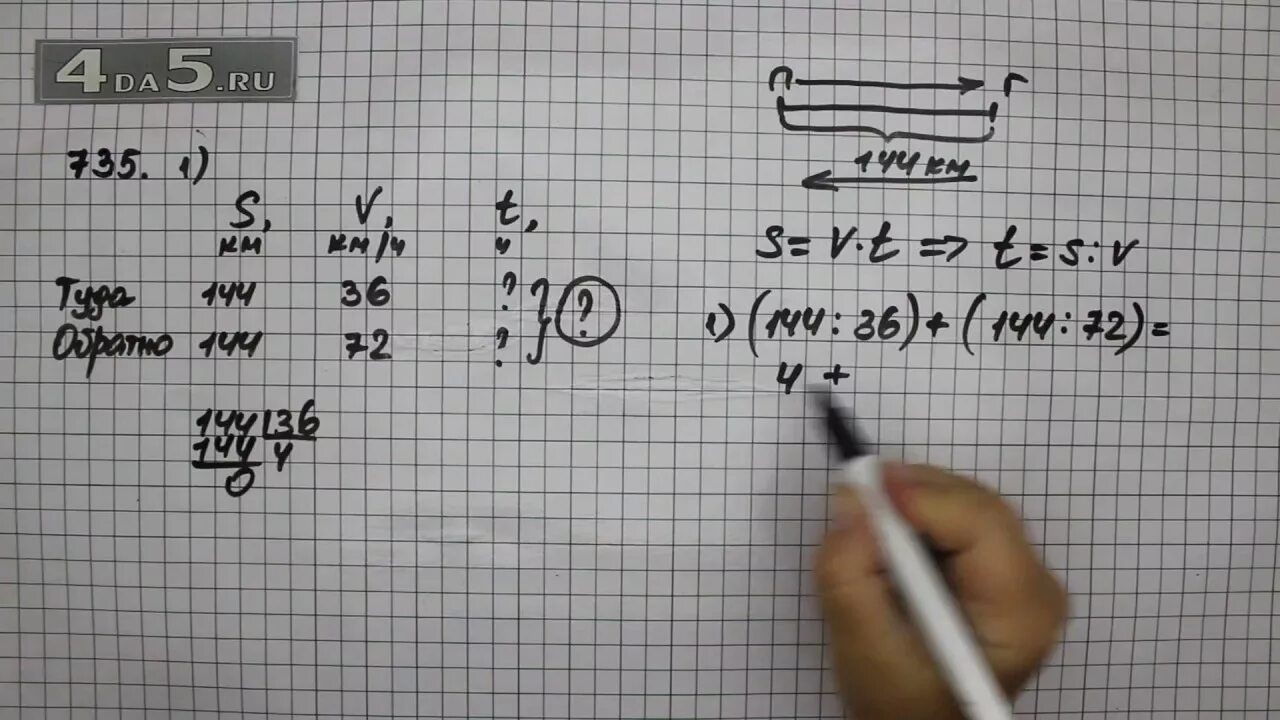 4DA5.RU
735. 1)
S, V, t,
км км/ч ч
Туда 144 36 ?
Обратно 144 72 ?
?
144 36
144 4
0
П Г
144 км
S = V · t => t = S : V
1) (144 : 36) + (144 : 72) =
4 +